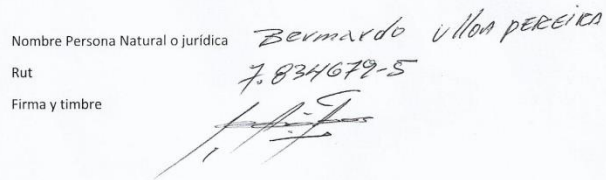 Nombre Persona Natural o jurídica Bermardo Ulloa PEREIRA
Rut 7.834679-5
Firma y timbre